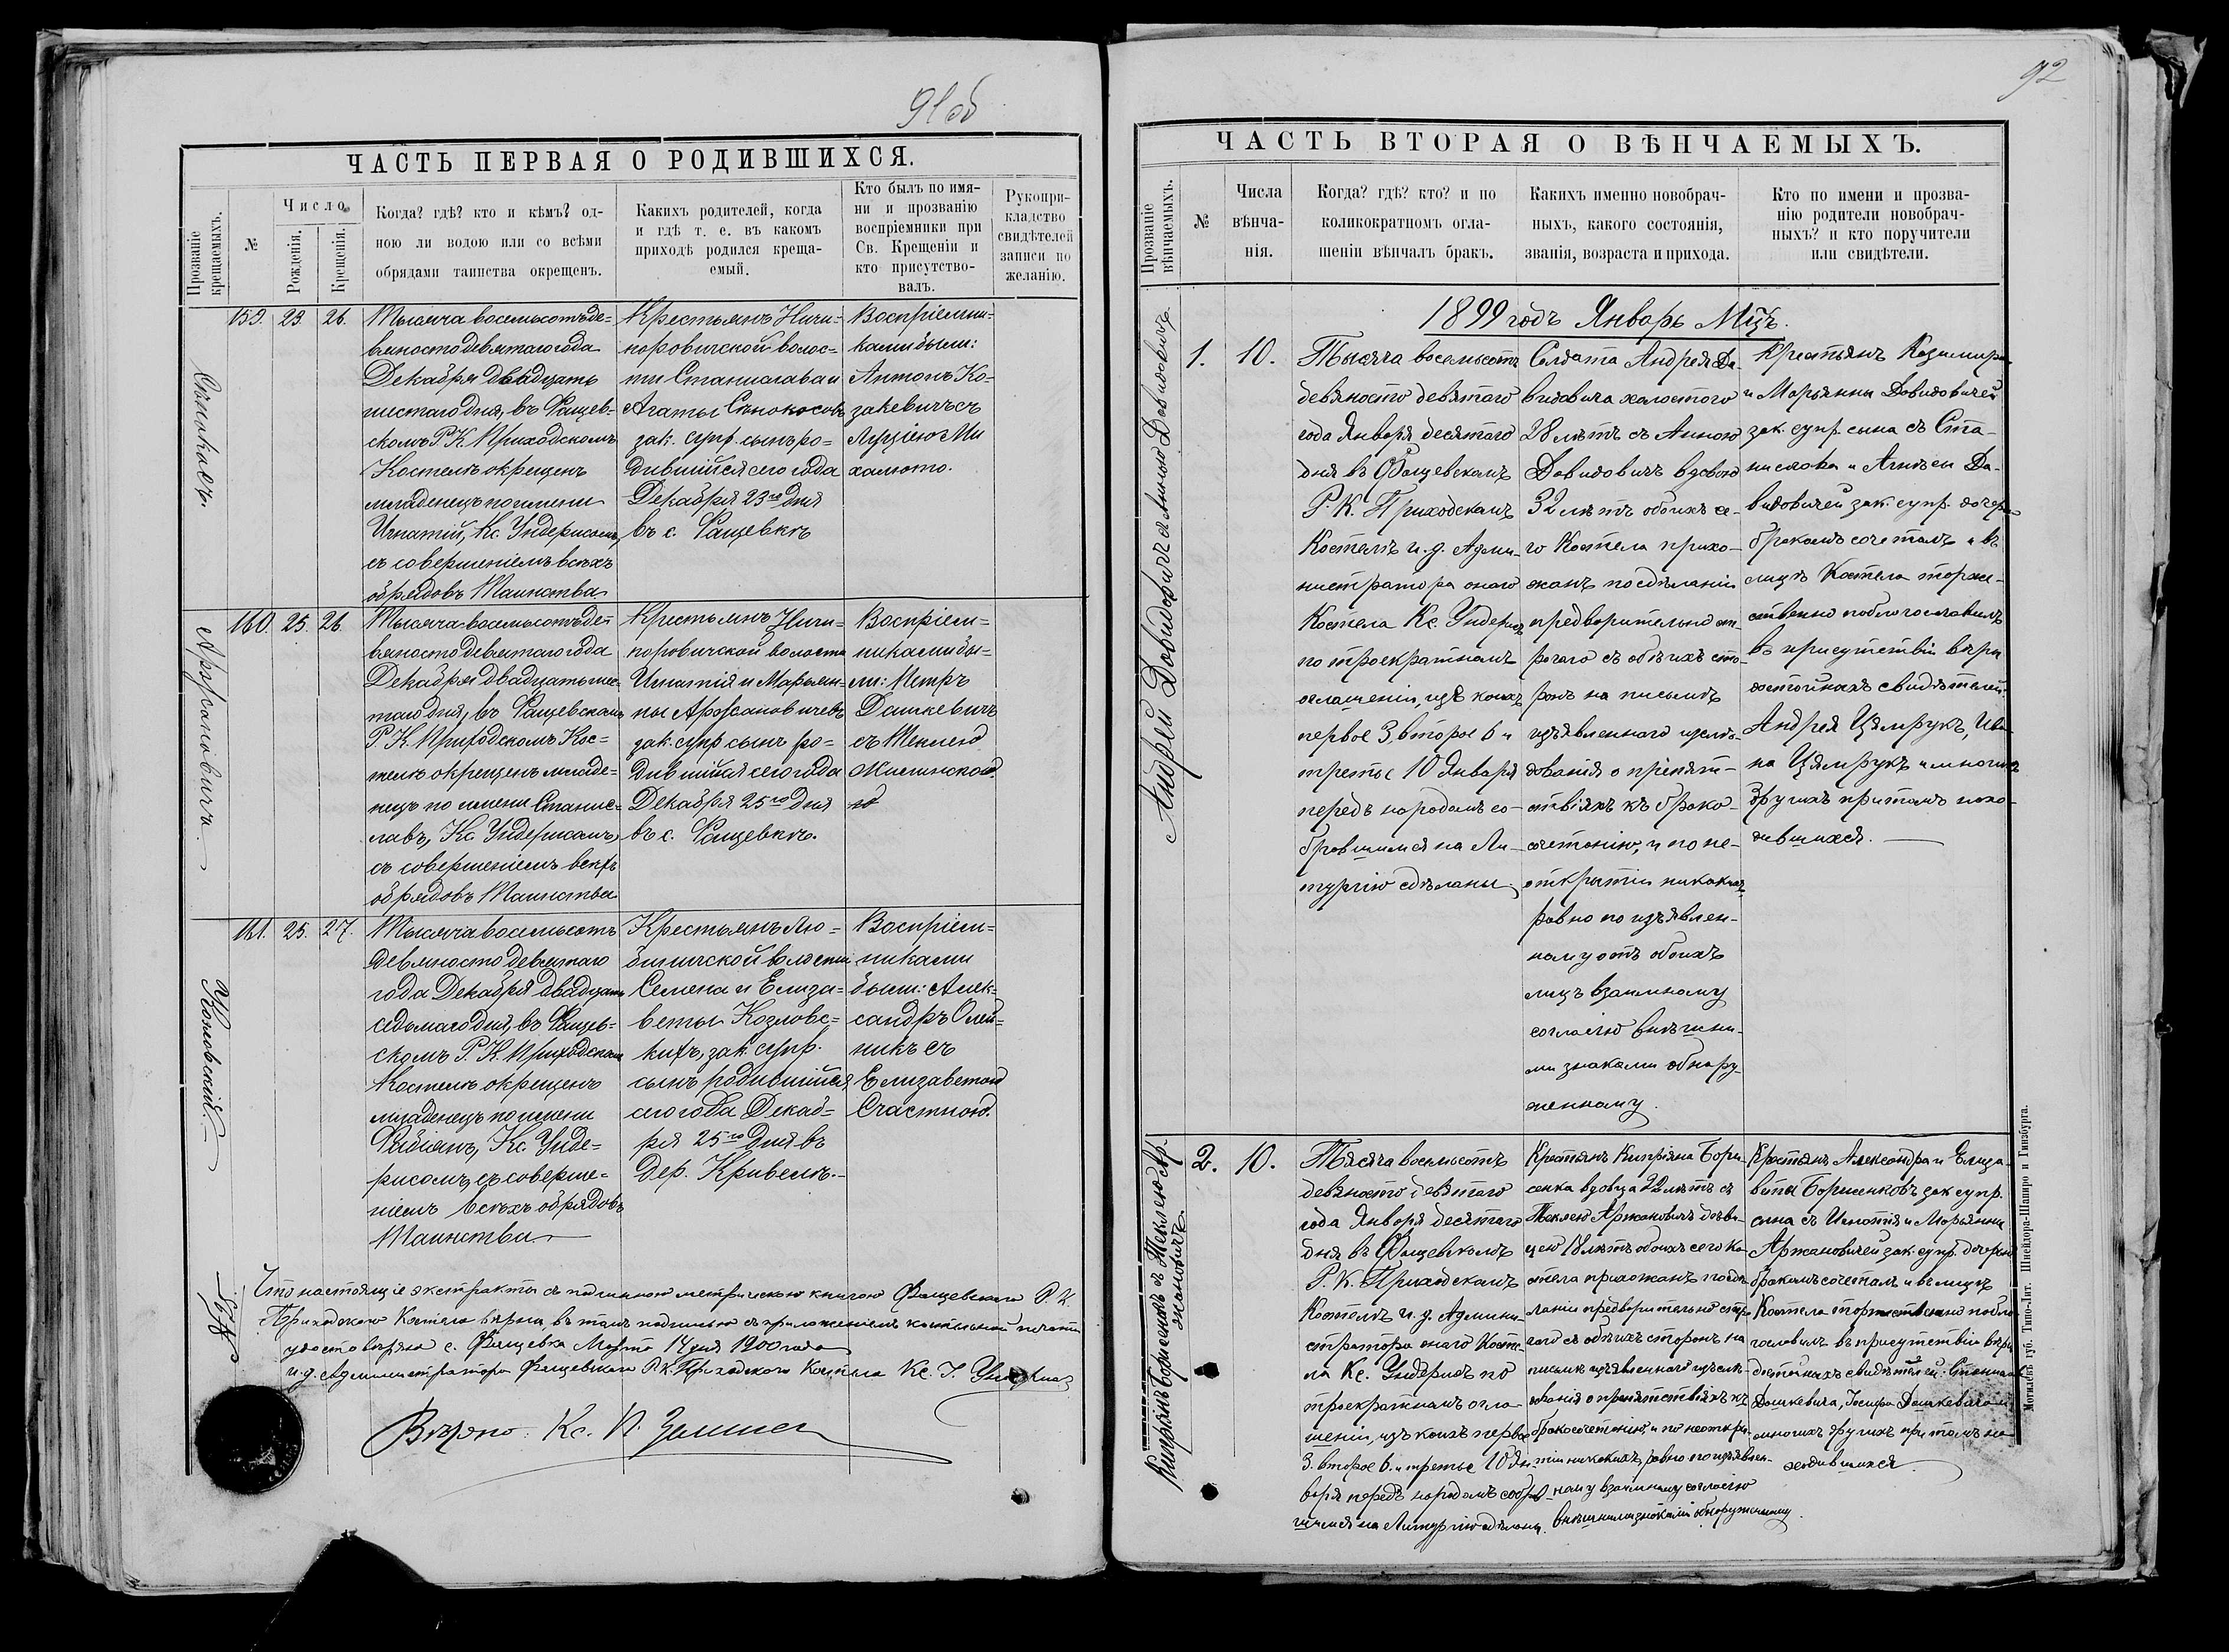 91 об
ЧАСТЬ ПЕРВАЯ О РОДИВШИХСЯ.
Прозваніе крещаемыхъ.
№
Число
Рожденія.
Крещенія.
Когда? гдѣ? кто и кѣмъ? од-
ною ли водою или со всѣми
обрядами таинства окрещенъ.
Какихъ родителей, когда
и гдѣ т. е. въ какомъ
приходѣ родился креща-
емый.
Кто былъ по имя-
ни и прозванію
воспріемники при
Св. Крещеніи и
кто присутство-
валъ.
Рукопри-
кладство
свидѣтелей
записи по
желанію.
Сѣнокосъ.
159. 23. 26.
Тысяча восемьсотъ де-
вяносто девятаго года
Декабря двадцать
шестаго дня, въ Фащев-
скомъ Р. К. Приходскомъ
Костелѣ окрещенъ
младенецъ по имени
Игнатій, Кс. Ундерисомъ,
съ совершеніемъ всѣхъ
обрядовъ Таинства
Крестьянъ Ничи-
поровичской волос-
ти Станислава и
Агаты Сѣнокосовъ
зак. супр. сынъ ро-
дившійся сего года
Декабря 23го дня
въ с. Фащевкѣ
Воспріемни-
ками были:
Антонъ Ко-
закевичъ съ
Луціею Ми
халюто.
160. 25. 26.
Тысяча восемьсотъ де-
вяносто девятаго года
Декабря двадцать шес-
таго дня, въ Фащевскомъ
Р. К. Приходскомъ Кос-
телѣ окрещенъ младе-
нецъ по имени Станис-
лавъ, Кс. Ундерисомъ,
съ совершеніемъ всѣхъ
обрядовъ Таинства
Крестьянъ Ничи-
поровичской волости
Игнатія и Марьян-
ны
зак. супр. сынъ ро-
дившійся сего года
Декабря 25го дня
въ с. Фащевкѣ.
Воспріем-
никами бы-
ли: Петръ
Дашкевичъ
съ Теклею
ю
161. 25. 27.
Тысяча восемьсотъ
девяносто девятаго
года Декабря двадцать
седьмаго дня, въ Фащев-
скомъ Р. К. Приходскомъ
Костелѣ окрещенъ
младенецъ по имени
Фабіанъ, Кс. Унде-
рисомъ, съ соверше-
ніемъ всѣхъ обрядовъ
Таинства
Крестьянъ Лю-
биничской волости
Семена и Елиза-
веты Козловс-
кихъ, зак. супр.
сынъ родившійся
сего года Декаб-
ря 25го дня въ
дер. Кривель.
Воспріем-
никами
были: Алек-
сандръ Олей-
никъ съ
Елизаветою
Счастною.
Что настоящіе экстракты съ подлинною метрическою книгою Фащевскаго Р. К.
Приходскаго Костела вѣрны, въ томъ подписью съ приложеніемъ костельной печати
удостовѣряю с. Фащевка Марта 14 дня 1900 года
и. д. Администратора Фащевскаго Р. К. Приходскаго Костела Кс. І. Ундерисъ
Вѣрно: Кс. П.
92
ЧАСТЬ ВТОРАЯ О ВѢНЧАЕМЫХЪ.
Прозваніе вѣнчаемыхъ.
№
Числа
вѣнча-
нія.
Когда? гдѣ? кто? и по
коликократномъ огла-
шеніи вѣнчалъ бракъ.
Какихъ именно новобрач-
ныхъ, какого состоянія,
званія, возраста и прихода.
Кто по имени и прозва-
нію родители новобрач-
ныхъ? и кто поручители
или свидѣтели.
1899 годъ Январь Мцъ.
Андрей Довидовичъ съ Анною Довидовичъ.
1. 10.
Тысяча восемьсотъ
девяносто девятаго
года Января десятаго
дня въ Фащевскомъ
Р. К. Приходскомъ
Костелѣ и. д. Адми-
нистратора онаго
Костела Кс. Ундерисъ
по троекратномъ
оглашеніи, изъ коихъ
первое 3, второе 6 и
третье 10 Января
передъ народомъ со-
бравшимся на Ли-
тургію сдѣланы
Солдата Андрея До-
видовича холостого
28 лѣтъ съ Анною
Довидовичъ вдовою
32 лѣтъ обоихъ се-
го Костела прихо-
жанъ по сдѣланіи
предворительно ст-
рогаго съ обѣихъ сто-
ронъ на письмѣ
изъявленнаго изслѣ-
дованія о препят-
ствіяхъ къ брако-
сочетанію, и по не-
открытіи никакихъ
равно по изъявлен-
ному отъ обоихъ
лицъ взаимному
согласію внѣшни-
ми знаками обнару-
женному.
Крестьянъ Казимира
и Марьянны Довидовичей
зак. супр. сына съ Ста-
нислава и Агнѣсы До-
видовичей зак. супр. дочерью
бракомъ сочеталъ и въ
лицѣ Костела торже-
ственно поблагословилъ
въ присутствіи вѣры
достойныхъ свидѣтелей:
Андрея Цямрукъ, Ива-
на Цямрукъ и многихъ
другихъ притомъ нахо-
дившихся.
Кипріянъ Борисенокъ съ Теклею Ар-
жановичъ.
2. 10.
Тысяча восемьсотъ
девяносто девятаго
года Января десятаго
дня въ Фащевскомъ
Р. К. Приходскомъ
Костелѣ и. д. Админи-
стратора онаго Косте-
ла Кс. Ундерисъ по
троекратномъ огла-
шеніи, изъ коихъ первое
3. второе 6. и третье 10 Ян-
варя передъ народомъ собрав-
шимся на Литургію сдѣланы.
Крестьянъ Кипріяна Бори-
сенка вдовца 22 лѣтъ съ
Теклею Аржановичъ дѣви-
цею 18 лѣтъ обоихъ сего Ко-
стела прихожанъ по сдѣ-
ланіи предворительно стро-
гаго съ обѣихъ сторонъ на
письмѣ изъявленнаго изслѣ-
дованія о препятствіяхъ къ
бракосочетанію, и по неоткры-
тіи никакихъ, равно по изъявлен-
ному взаимному согласію
внѣшними знаками обнаруженному.
Крестьянъ Александра и Елиза-
веты Борисенковъ зак. супр.
сына съ Игнатія и Марьянны
Аржановичей зак. супр. дочерью
бракомъ сочеталъ и въ лицѣ
Костела торжественно побла-
гословилъ въ присутствіи вѣры
достойныхъ свидѣтелей: Станислава
Дашкевича, Іосифа Дашкевича и
многихъ другихъ притомъ на-
ходившихся.
Могилевъ губ. Типо-Лит. Шнейдора-Шапиро и Гинзбурга.